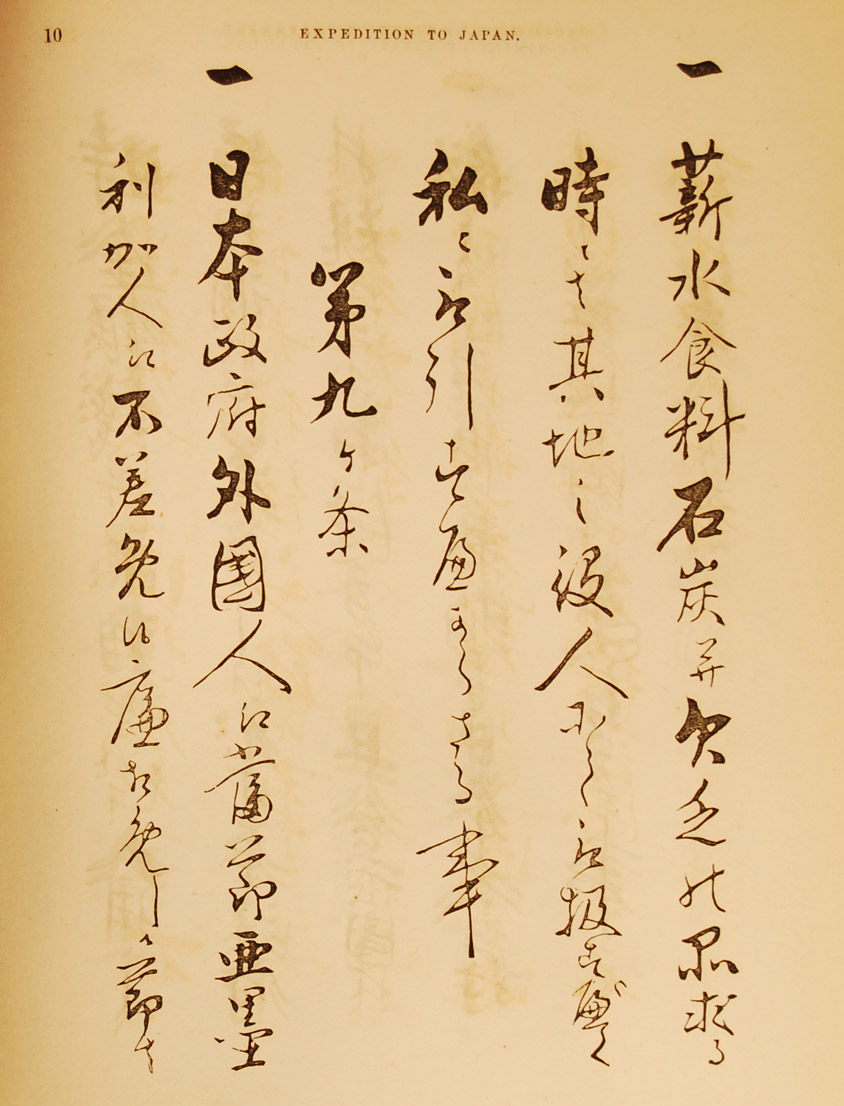 10 EXPEDITION TO JAPAN.
一 薪水食料石炭并欠乏の品求る
時ニは其地之役人にて取扱すへく
私ニ取引すへからさる事
第九ケ条
一 日本政府外國人江當節亜墨
利加人江不差免候廉相免し候節は